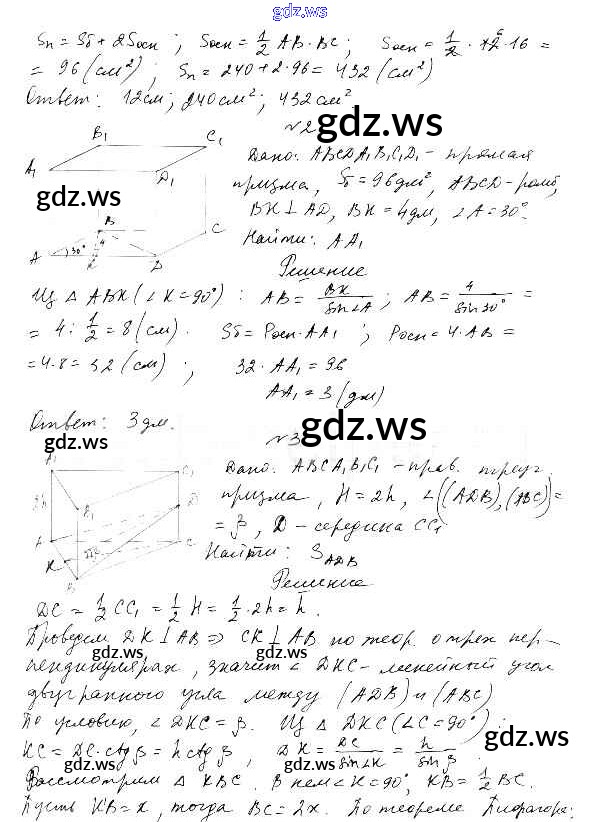 gdz.ws
Sп = Sб + 2Sосн ; Sосн = 1/2 AB·BC; Sосн = 1/2 · 12·16 =
= 96 (см²); Sп = 240 + 2·96 = 432 (см²)
Ответ: 12см; 240см²; 432см².
№2
gdz.ws
B₁ C₁ A₁ D₁
Дано: ABCDA₁B₁C₁D₁ - прямая
призма, Sб = 96дм², ABCD-ромб,
gdz.ws
BK ⊥ AD, BK = 4дм, ∠A = 30°.
B C A 30° 4 K D
Найти: AA₁
Решение
Из △ ABK (∠K = 90°) : AB = BK/sin∠A ; AB = 4/sin30° =
= 4 : 1/2 = 8 (см). Sб = Pосн·AA₁ ; Pосн = 4·AB =
= 4·8 = 32 (см) ; 32·AA₁ = 96
AA₁ = 3 (дм)
gdz.ws
Ответ: 3дм.
gdz.ws
№3
A₁ C₁ 2h B₁ D A C K B
Дано: ABCA₁B₁C₁ - прав. треуг.
призма, H = 2h, ∠((ADB),(ABC)) =
= β, D - середина CC₁
gdz.ws
Найти: S ADB
Решение
DC = 1/2 CC₁ = 1/2 H = 1/2 · 2h = h.
Проведем DK ⊥ AB ⇒ CK ⊥ AB по теор. о трех пер-
gdz.ws gdz.ws
пендикулярах, значит ∠ DKC - линейный угол
двугранного угла между (ADB) и (ABC)
По условию, ∠ DKC = β. Из △ DKC (∠C = 90°) :
gdz.ws
KC = DC·ctgβ = h ctgβ, DK = DC/sin∠K = h/sinβ.
gdz.ws gdz.ws
Рассмотрим △ KBC. В нем ∠K = 90°, KB = 1/2 BC.
Пусть KB = x, тогда BC = 2x. По теореме Пифагора: